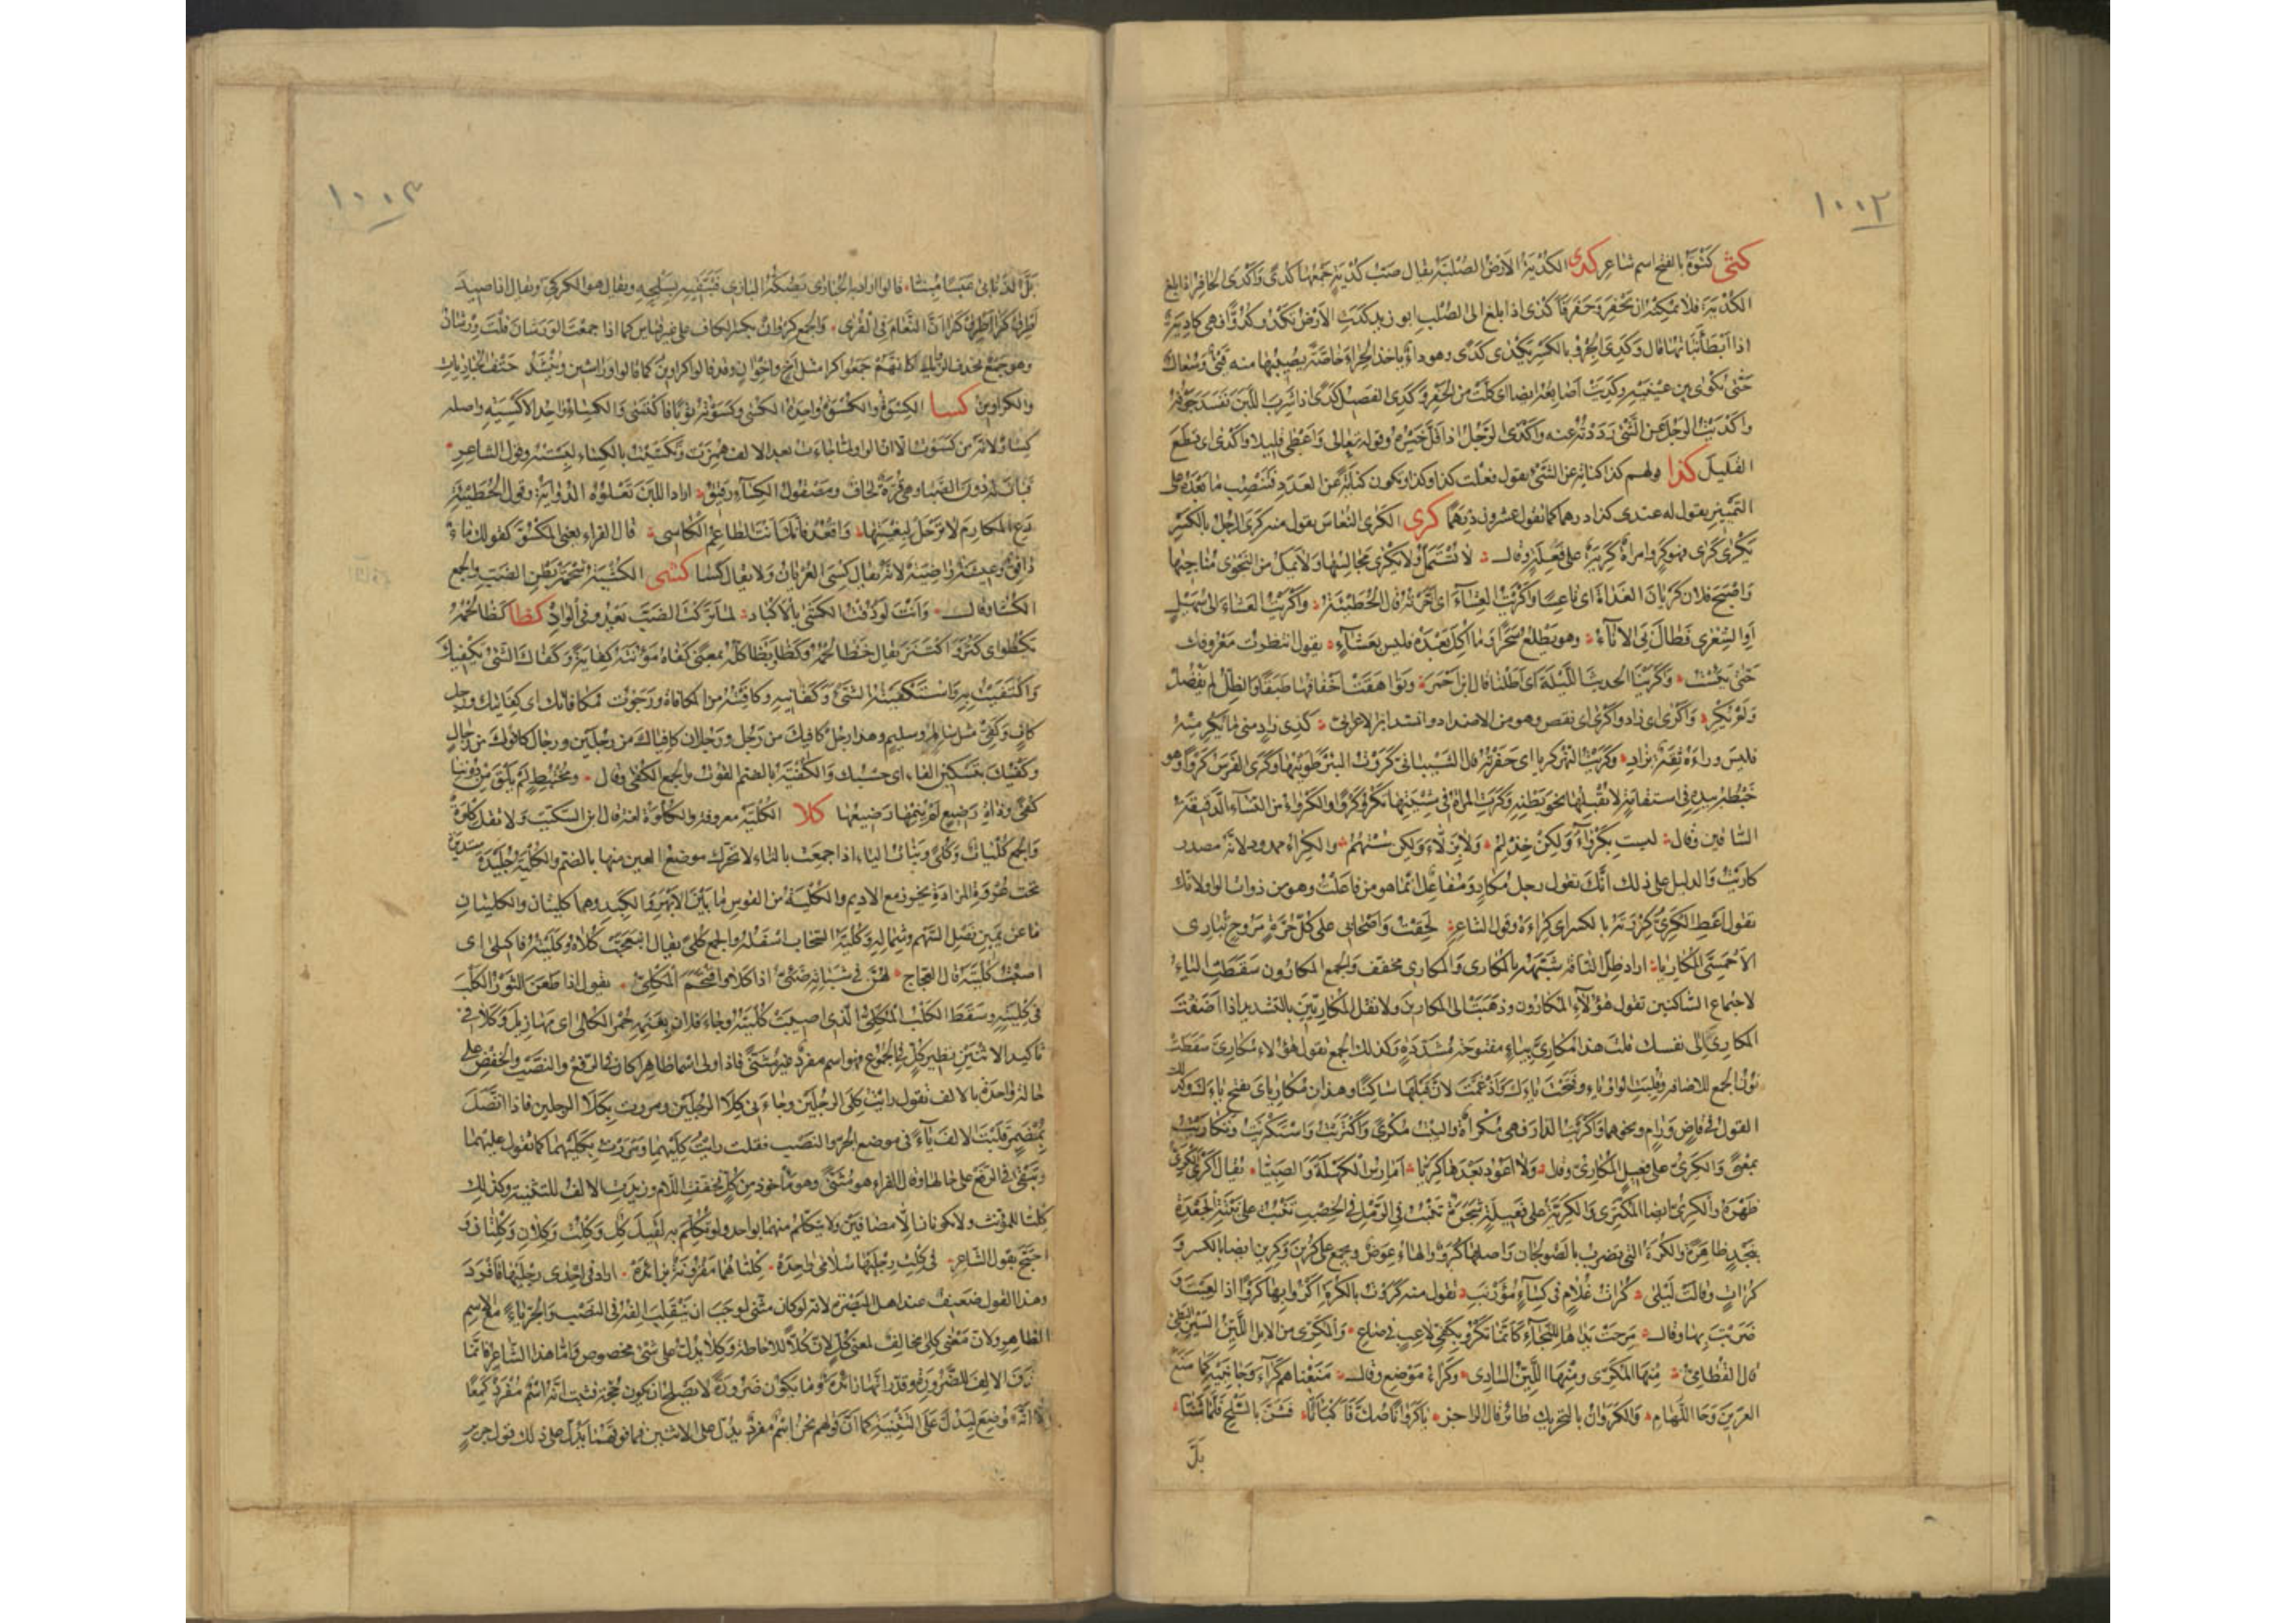 ١٠٠٢
كثى كثوة بالفتح اسم شاعر كدى الكدية الارض الصلبة يقال ضب كدية جمعها كدى واكدى الحافر اذا بلغ
الكدية فلا يمكنه ان يحفر وحفر فاكدى اذا بلغ الى الصلب ابو زيد كدت الارض تكدو كدوا فهى كادية
اذا ابطأ نباتها قال وكدى الجرو بالكسر يكدى كدى وهو داء ياخذ الجراء خاصة يصيبها منه قىء وسعال
حتى يكوى بين عينيه وكديت اصابعه ايضا اى كلت من الحفر وكدى الفصيل كدى اذا شرب اللبن ففسد جوفه
واكديت الرجل عن الشئ رددته عنه واكدى الرجل اذا قل خيره وقوله تعالى واعطى قليلا واكدى اى قطع
القليل كذا وقولهم كذا كناية عن الشئ يقول فعلت كذا وكذا وتكون كناية عن العدد فتنصب ما بعده على
التمييز يقول له عندى كذا درهما كما تقول عشرون درهما كرى الكرى النعاس يقول منه كرى الرجل بالكسر
يكرى كرى فهو كر وامراة كرية على فعلة وقال لا تستمل ولا يكرى مجالسها ولا يمل من النجوى مناجيها
واصبح فلان كريان الغداة اى ناعسا واكريت العشاء اى اخرته قال الحطيئة واكريت العشاء الى سهيل
او الشعرى فطال بى الاناء وهو يطلع سحرا وما اكل بعده فليس بعشاء يقول انتظرت معروفك
حتى يئست واكرينا الحديث الليلة اى اطلنا قال ابن احمر وتواهقت اخفافها طبقا والظل لم يفضل
ولم يكر واكرى اى زاد واكرى اى نقص وهو من الاضداد وانشد ابن الاعرابى كذى زاد متى ما يكر منه
فليس وراءه ثقة بزاد وكريت النهر كريا اى حفرته قال الشيبانى كروت البئر طويتها وكرى الفرس كروا وهو
خبطه بيده فى استقامة لا يقبلها نحو بطنه وكرت المراة فى مشيتها تكرو كروا والكرواء من النساء الدقيقة
الساقين وقال ليست بكرواء ولكن خدلم ولا بزلاء ولكن ستهم والكراء ممدود لانه مصدر
كاريت والدليل على ذلك انك تقول رجل مكار ومفاعل انما هو من فاعلت وهو من ذوات الواو لانك
تقول اعط الكرى كروته بالكسر اى كراءه وقول الشاعر لحقت واصحابى على كل حرة مروح تبارى
الاحمسى المكاريا اراد ظل الناقة شبهه بالمكارى والمكارى مخفف والجمع المكارون سقطت الياء
لاجتماع الساكنين تقول هؤلاء المكارون وذهبت الى المكارين ولا تقل المكاريين بالتشديد اذا اضفت
المكارى الى نفسك قلت هذا مكارى بياء مفتوحة مشددة وكذلك الجمع تقول هؤلاء مكارى سقطت
نون الجمع للاضافة وقلبت الواو ياء وفتحت ياءك وادغمت لان قبلها ساكنا وهذان مكارياى بفتح ياءك وكذلك
القول فى قاض ورام ونحوهما واكريت الدار فهى مكراة والبيت مكرى واكتريت واستكريت وتكاريت
بمعنى والكرى على فعيل المكارى وقال ولا اعود بعدها كريا امارس الكهلة والصبيا يقال اكرى الكرى
ظهره والكرى ايضا المكترى والكرية على فعيلة شجرة تنبت فى الرمل فى الخصب تنبت على نبتة الجعدة
بنجد ظاهرة والكرة التى يضرب بالصولجان واصلها كرو والهاء عوض ويجمع على كرين وكرين ايضا بالكسر و
كرات وقالت ليلى كرات غلام فى كساء مؤرنب تقول منه كروت بالكرة اكرو بها كروا اذا لعبت و
ضربت بها وقال مرحت يداها للنجاء كانما تكرو بكفى لاعب فى صاع والمكرى من الابل اللين السير البطئ
قال القطامى منها المكرى ومنها اللين السادى وكراء موضع وقال منعناكم كراء وجانبيه كما منع
العرين وحا اللهام والكروان بالتحريك طائر قال الراجز يا كروانا صك فاكبانا فشن بالسلح فلما شنا
بل
١٠٠٣
بل الذنابى عبسا مبنا قالوا اراد به الحبارى يصكه البازى فيتقيه بسلحه ويقال هو الكركى ويقال اذا صيد
اطرق كرا اطرق كرا ان النعام فى القرى والجمع كروان بكسر الكاف على غير قياس كما اذا جمعت الورشان قلت ورشان
وهو جمع بحذف الزوائد كانهم جمعوا كرا مثل اخ واخوان وقد قالوا كراوين كما قالوا وراشين وينشد حتف الحباريات
والكراوين كسا الكسوة والكسوة واحدة الكسى وكسوته ثوبا فاكتسى والكساء واحد الاكسية واصله
كساو لانه من كسوت الا ان الواو لما جاءت بعد الالف همزت وتكسيت بالكساء لبسته وقول الشاعر
فبات له دون الصبا وهى قرة لحاف ومصقول الكساء رقيق اراد اللبن تعلوه الدواية وقول الحطيئة
دع المكارم لا ترحل لبغيتها واقعد فانك انت الطاعم الكاسى قال الفراء يعنى المكسو كقولك ماء
دافق وعيشة راضية لانه يقال كسى العريان ولا يقال كسا كشى الكشية شحمة بطن الضب والجمع
الكشا وقال وانت لو ذقت الكشى بالاكباد لما تركت الضب يعدو فى الواد كظا كظا لحمه
يكظوا اى كثر واكتنز يقال خظا لحمه وكظا وبظا كله بمعنى كفاه مؤنته كفاية وكفاك الشئ يكفيك
واكتفيت به واستكفيته الشئ وكفانيه وكافيته من المكافاة ورجوت مكافاتك اى كفايتك ورجل
كاف وكفى مثل سالم وسليم وهذا رجل كافيك من رجل ورجلان كافياك من رجلين ورجال كافوك من رجال
وكفيك بتسكين الفا اى حسبك والكفية بالضم القوت والجمع الكفى وقال ومختبط لم يلق من دوننا
كفى وذات رضيع لم ينمها رضيعها كلا الكلية معروفة والكلوة لغة قال ابن السكيت ولا تقل كلوة
والجمع كليات وكلى وبنات الياء اذا جمعت بالتاء لا تحرك موضع العين منها بالضم والكلية جليدة مستديرة
تحت عروة المزادة يخرز مع الاديم والكلية من القوس ما بين الابهر والكبد وهما كليتان والكليتان
ما عن يمين نصل السهم وشماله وكلية السحاب اسفله والجمع كلى يقال انبعجت كلاه وكليته فاكتلى اى
اصبت كليته قال العجاج لهن فى شباته صئى اذا كلا واقتحم المكلى يقول اذا طعن الثور الكلب
فى كليته وسقط الكلب المكلى الذى اصيبت كليته وجاء فلان بغنمه حمر الكلى اى مهازيل وكلا فى
تاكيد الاثنين نظير كل فى المجموع وهو اسم مفرد غير مثنى فاذا ولى اسما ظاهرا كان فى الرفع والنصب والخفض على
حالة واحدة بالالف تقول رايت كلى الرجلين وجاءنى كلا الرجلين ومررت بكلا الرجلين فاذا اتصل
بمضمر قلبت الالف ياء فى موضع الجر والنصب فقلت رايت كليهما ومررت بكليهما كما تقول عليهما
وتبقى فى الرفع على حالها وقال الفراء هو مثنى وهو ماخوذ من كل فخففت اللام وزيدت الالف للتثنية وكذلك
كلتا للمؤنث ولا يكونان الا مضافين ولا يتكلم منهما بواحد ولو تكلم به لقيل كل وكلت وكلان وكلتان و
احتج بقول الشاعر فى كلت رجليها سلامى واحدة كلتاهما مقرونة بزائدة اراد فى احدى رجليها فافرد
وهذا القول ضعيف عند اهل البصرة لانه لو كان مثنى لوجب ان ينقلب الفه فى النصب والجر ياء مع الاسم
الظاهر ولان معنى كلى مخالف لمعنى كل لان كلا للاحاطة وكلا يدل على شئ مخصوص واما هذا الشاعر فانما
حذف الالف للضرورة وقدر انها زائدة وما يكون ضرورة لا يصلح ان يكون حجة فثبت انه اسم مفرد كمعا
الا انه وضع ليدل على التثنية كما ان قولهم نحن اسم مفرد يدل على الاثنين فما فوقهما يدل على ذلك قول جرير